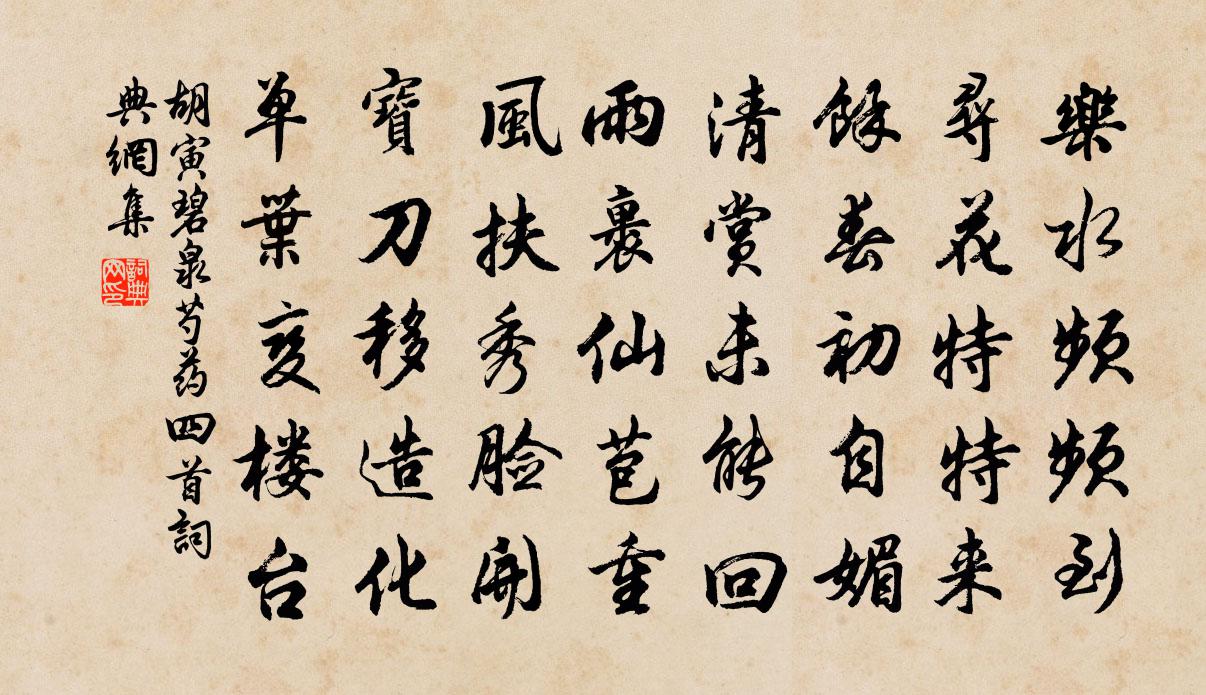 樂水頻頻到
尋花特特来
餘春初自媚
清賞未能回
雨裹仙苞重
風扶秀臉開
寶刀移造化
单葉变楼台
胡寅碧泉芍药四首詞
典網集
詞典網印